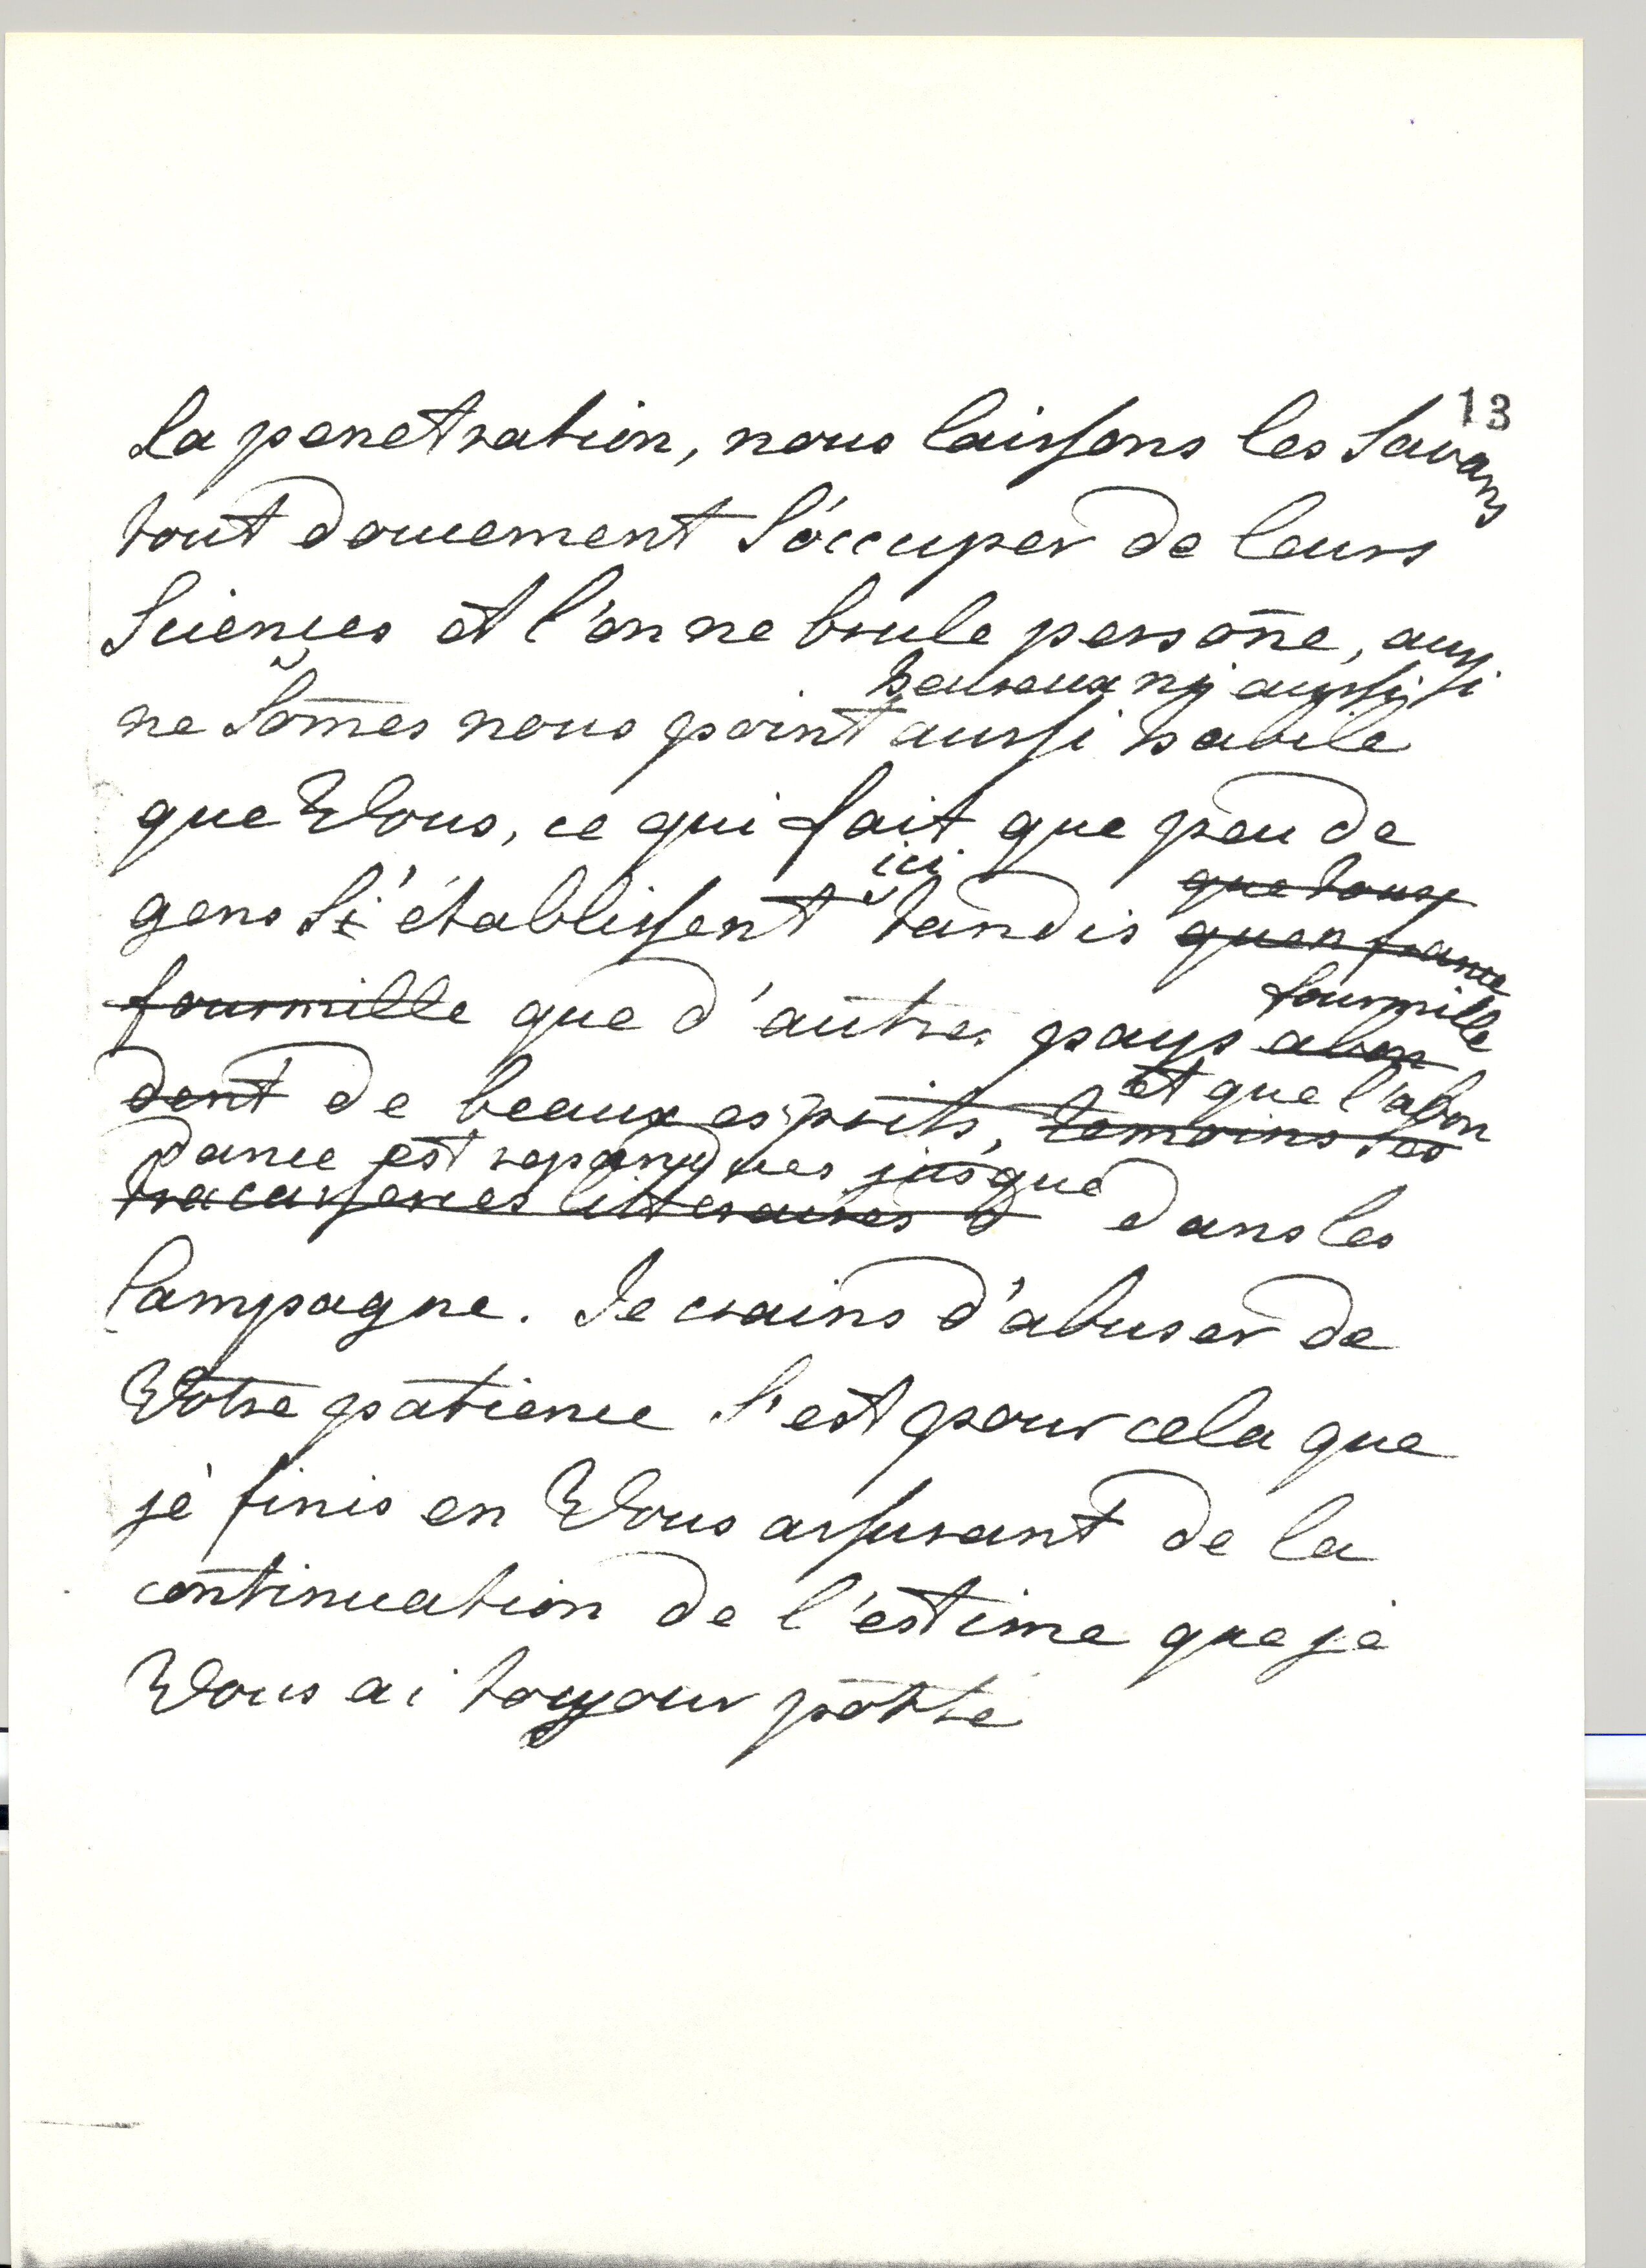 13
La penetration, nous laissons les Savans
tout doucement S'occuper de leurs
Sciences et l'on ne brule persone, aussi
heureux ny aussi
ne Somes nous point aussi habile
que Vous, ce qui fait que peu de
ici
que tous
gens Si établissent tandis quen france
fourmille
fourmille que d'autres pays abon
et que l'abon
dent de beaux esprits, temoins les
dance est repandues jusque
tracasseries litteraires d dans les
Campagne. Je crains d'abuser de
Votre patience S'est pour cela que
je finis en Vous assurant de la
continuation de l'estime que je
Vous ai toujour porté